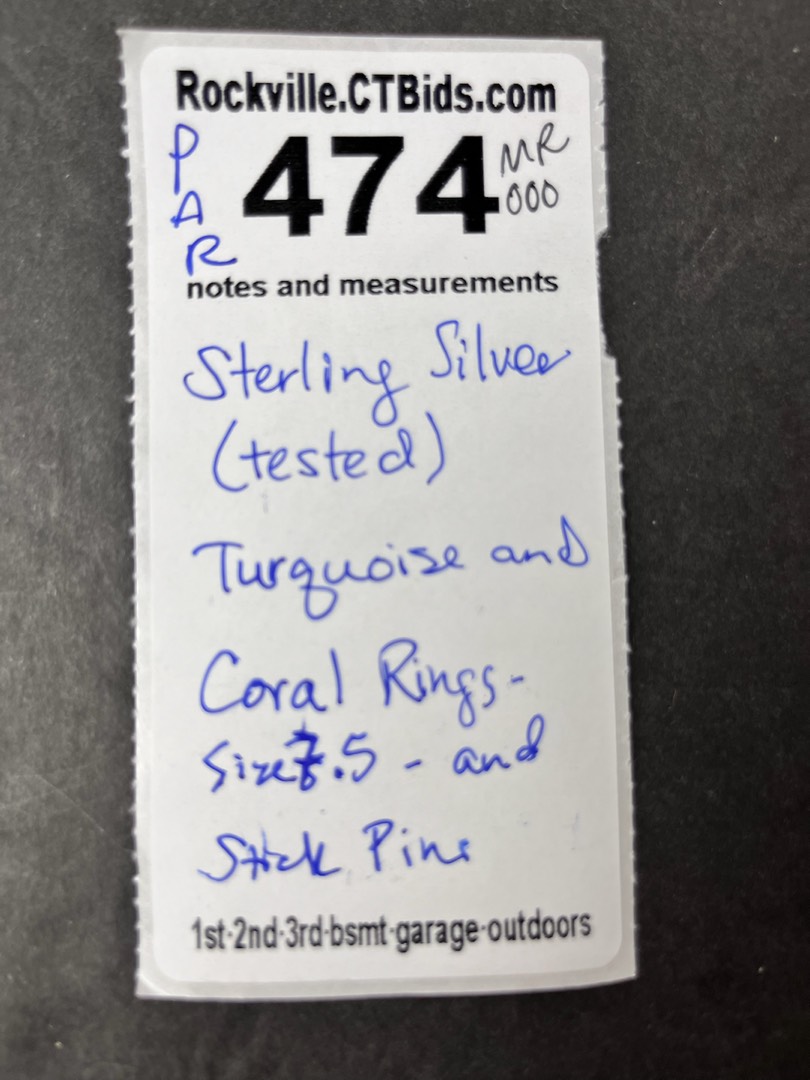 Rockville.CTBids.com
P
A
R
474
MR
000
notes and measurements
Sterling Silver
(tested)
Turquoise and
Coral Rings-
Size .5 - and
Stick Pins
1st·2nd·3rd·bsmt·garage·outdoors